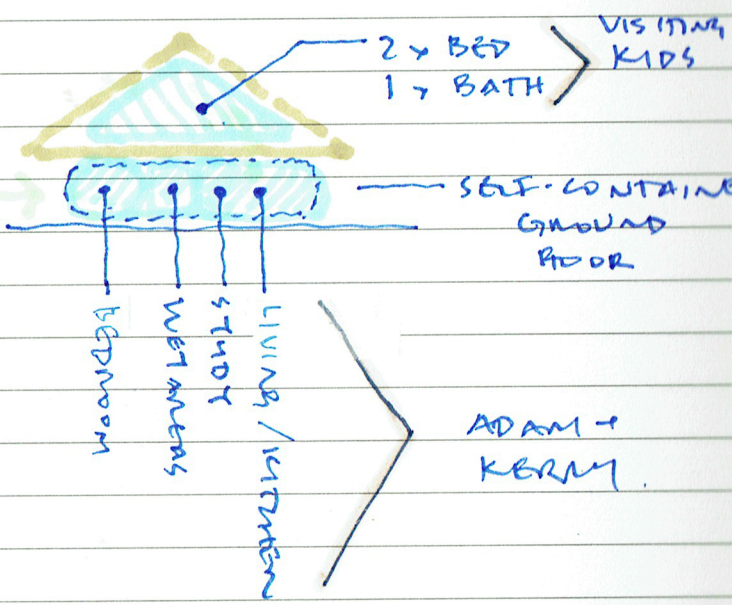 2 x BED
1 x BATH
VISITING
KIDS
SELF-CONTAINE
GROUND
FLOOR
BEDROOM
WET AREAS
STUDY
LIVING / KITCHEN
ADAM +
KERRY.